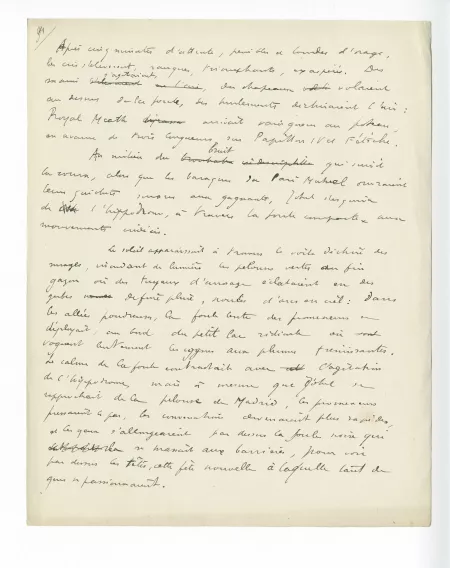 Après cinq minutes d'attente, pénibles et lourdes d'orage,
les cris s'élevèrent, rauques, triomphants, exaspérés. Des
mains s'agitaient, des chapeaux volaient
au dessus de la foule, des hurlements déchiraient l'air :
Royal Meath arrivait vainqueur au poteau,
en avance de trois longueurs, sur Papillon IV et Fétiche.
Au milieu du bruit qui suivit
la course, alors que les baraques du Pari Mutuel ouvraient
leurs guichets aux gagnants,
de l'hippodrome, à travers la foule compacte aux
mouvements
Le soleil apparaissait à travers le voile déchiré des
nuages, inondant de lumière les pelouses vertes au fin
gazon où des tuyaux d'arrosage éclataient en des
gerbes de fine pluie, arc en ciel : Dans
les allées poudreuses, la foule lente des promeneurs se
déployait, au bord du petit lac ridicule où
voguent lentement les cygnes aux plumes frémissantes.
Le calme de la foule contrastait avec l'agitation
de l'hippodrome, mais à mesure que se
rapprochait de la pelouse de Madrid, les promeneurs
pressaient le pas, les conversations devenaient plus rapides,
et les yeux s'allongeaient par dessus la foule noire qui
se massait aux barrières, pour voir
par dessus les têtes, cette fête nouvelle à laquelle tant de
gens se passionnaient.